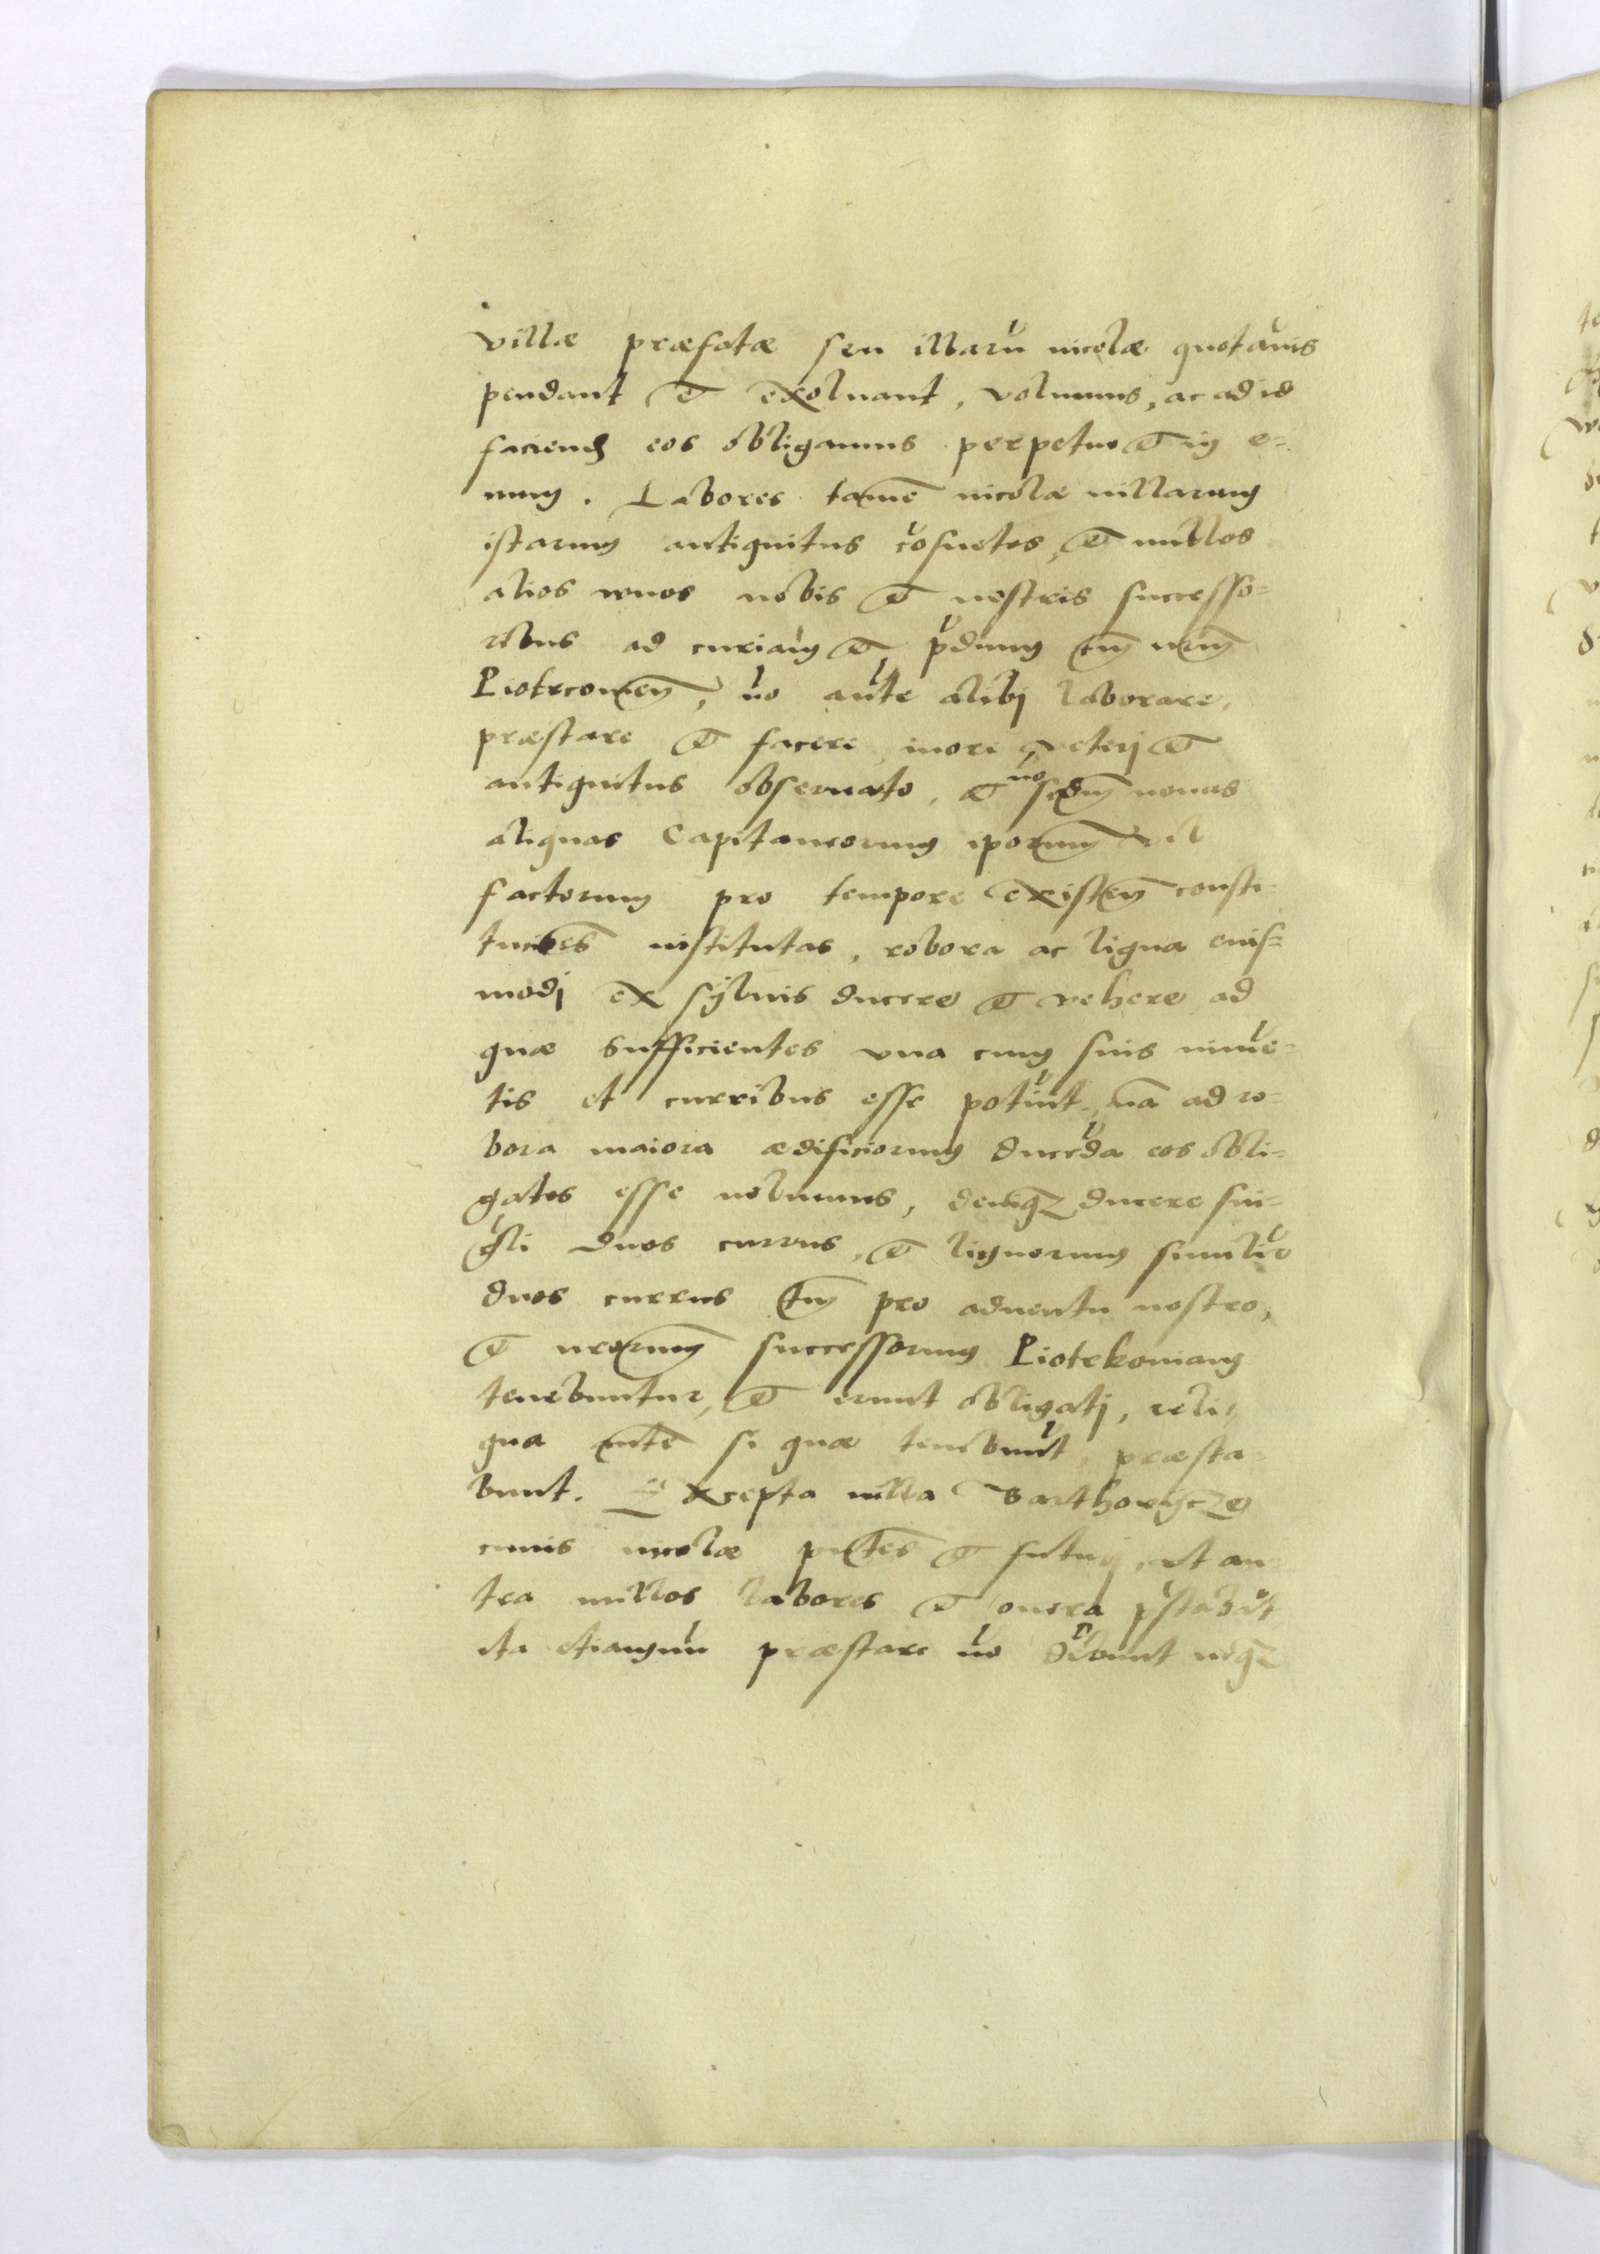 villæ præfatæ seu illarũ incolæ quotanis
pendant et exoluant, volumus, ac ad id
faciend eos obligamus perpetuo et in e-
uum. Labores tamẽ incolæ uillarum
istarum antiquitus cõsuetos, et nullos
alios nouos nobis et nostris successo-
ribus ad curiam et p̃dium tm̃ nrm̃
Piotrcouien̄, nõ aũte alibj laborare,
præstare et facere more veterj et
antiquitus obseruato, et nõ scdm̃ nouas
aliquas Capitaneorum ip̃orum vel
factorum pro tempore existen̄ consti-
tucio̅es institutas, robora ac ligna eius-
modj ex syluis ducere et vehere ad
quæ sufficientes vna cum suis iumẽ-
tis et curribus esse poterũt, nã ad ro-
bora maiora ædificiorum ducẽda eos obli-
gatos esse nolumus, deniq₃ ducere sin-
gũli duos currus, et lignorum similit̃
duos currus tm̃ pro aduentu nostro,
et nrorum successorum Piotrkouiam
tenebuntur, et erunt obligatj, reli-
qua aute̅ si quæ tenebunt̃, præsta-
bunt. Excepta uilla
cuius incolæ pn̄tes et futurj, ut an-
tea nullos labores et onera p̃stabãt
ita etiamnũ præstare nõ debunt neq₃